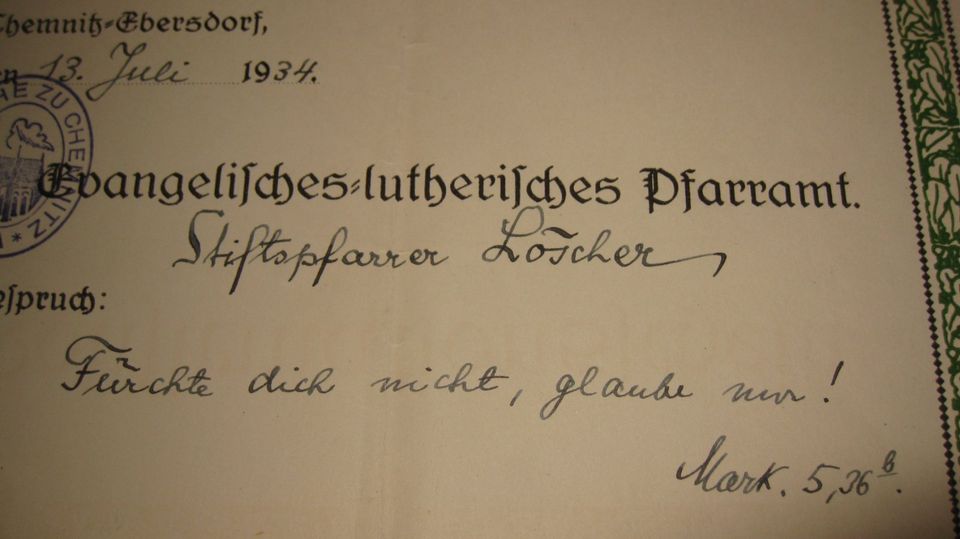 Chemnitz-Ebersdorf,
13. Juli 1934.
AE ZU CHEMNITZ *
Evangelisches-lutherisches Pfarramt.
Stiftspfarrer Löscher
espruch:
Fürchte dich nicht, glaube nur!
Mark. 5,36 b.